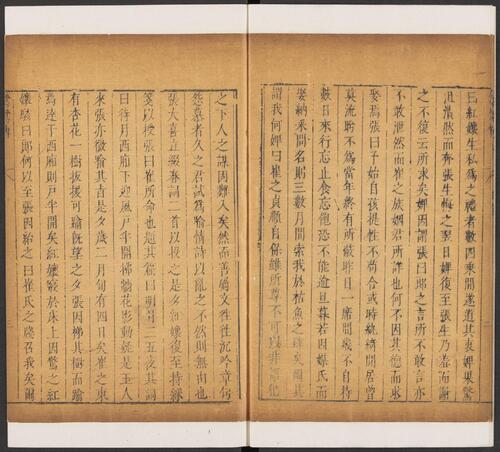 曰紅娘生私為之禮者數四乘間遂道其衷婢果驚
沮潰然而奔張生悔之翌日婢復至張生乃羞而謝
之不復云所求矣婢因謂張曰郎之言所不敢言亦
不敢泄然而崔之族姻君所詳也何不因其德而求
娶焉張曰予始自孩提性不苟合或時紈綺閒居曾
莫流盼不為當年終有所蔽昨日一席間幾不自持
數日來行忘止食忘飽恐不能逾旦暮若因媒氏而
娶納采問名則三數月間索我於枯魚之肆矣爾其
謂我何婢曰崔之貞順自保雖所尊不可以非語犯
之下人之謀固難入矣然而善屬文往往沉吟章句
怨慕者久之君試為喻情詩以亂之不然則無由也
張大喜立綴春詞二首以授之是夕紅娘復至持綵
箋以授張曰崔所命也題其篇曰明月三五夜其詞
曰待月西廂下迎風戶半開拂牆花影動疑是玉人
來張亦微喻其旨是夕歲二月旬有四日矣崔之東
有杏花一樹扳援可踰既望之夕張因梯其樹而踰
焉達于西廂則戶半開矣紅娘寢於床上因驚之紅
娘駭曰郎何以至張因紿之曰崔氏之牋召我矣爾